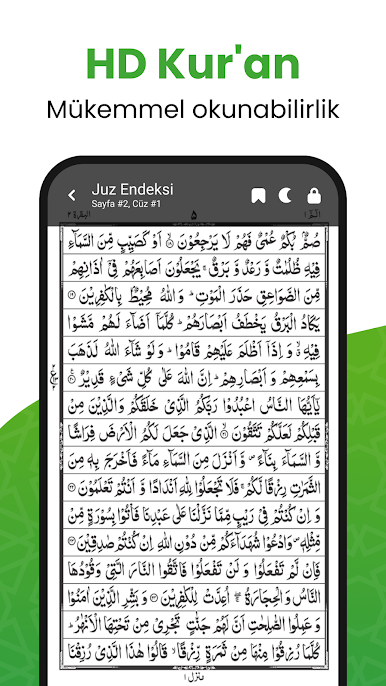 HD Kur'an
Mükemmel okunabilirlik
Juz Endeksi
Sayfa #2, Cüz #1
البقرة ٢
٥
الٓمّٓ ١
صُمٌّۢ بُكْمٌ عُمْیٌ فَهُمْ لَا یَرْجِعُوْنَ ۙ﴿۱۸﴾ اَوْ كَصَیِّبٍ مِّنَ السَّمَآءِ
فِیْهِ ظُلُمٰتٌ وَّ رَعْدٌ وَّ بَرْقٌ ۚ یَجْعَلُوْنَ اَصَابِعَهُمْ فِیْۤ اٰذَانِهِمْ
مِّنَ الصَّوَاعِقِ حَذَرَ الْمَوْتِ ؕ وَ اللّٰهُ مُحِیْطٌۢ بِالْكٰفِرِیْنَ ﴿۱۹﴾
یَكَادُ الْبَرْقُ یَخْطَفُ اَبْصَارَهُمْ ؕ كُلَّمَاۤ اَضَآءَ لَهُمْ مَّشَوْا
فِیْهِ ۙۗ وَ اِذَاۤ اَظْلَمَ عَلَیْهِمْ قَامُوْا ؕ وَ لَوْ شَآءَ اللّٰهُ لَذَهَبَ
بِسَمْعِهِمْ وَ اَبْصَارِهِمْ ؕ اِنَّ اللّٰهَ عَلٰی كُلِّ شَیْءٍ قَدِیْرٌ ﴿۲۰﴾
یٰۤاَیُّهَا النَّاسُ اعْبُدُوْا رَبَّكُمُ الَّذِیْ خَلَقَكُمْ وَ الَّذِیْنَ مِنْ
قَبْلِكُمْ لَعَلَّكُمْ تَتَّقُوْنَ ﴿ۙ۲۱﴾ الَّذِیْ جَعَلَ لَكُمُ الْاَرْضَ فِرَاشًا
وَّ السَّمَآءَ بِنَآءً ۪ وَّ اَنْزَلَ مِنَ السَّمَآءِ مَآءً فَاَخْرَجَ بِهٖ مِنَ
الثَّمَرٰتِ رِزْقًا لَّكُمْ ۚ فَلَا تَجْعَلُوْا لِلّٰهِ اَنْدَادًا وَّ اَنْتُمْ تَعْلَمُوْنَ ﴿۲۲﴾
وَ اِنْ كُنْتُمْ فِیْ رَیْبٍ مِّمَّا نَزَّلْنَا عَلٰی عَبْدِنَا فَاْتُوْا بِسُوْرَةٍ مِّنْ
مِّثْلِهٖ ۪ وَ ادْعُوْا شُهَدَآءَكُمْ مِّنْ دُوْنِ اللّٰهِ اِنْ كُنْتُمْ صٰدِقِیْنَ ﴿۲۳﴾
فَاِنْ لَّمْ تَفْعَلُوْا وَ لَنْ تَفْعَلُوْا فَاتَّقُوا النَّارَ الَّتِیْ وَ قُوْدُهَا
النَّاسُ وَ الْحِجَارَةُ ۖۚ اُعِدَّتْ لِلْكٰفِرِیْنَ ﴿۲۴﴾ وَ بَشِّرِ الَّذِیْنَ اٰمَنُوْا
وَ عَمِلُوا الصّٰلِحٰتِ اَنَّ لَهُمْ جَنّٰتٍ تَجْرِیْ مِنْ تَحْتِهَا الْاَنْهٰرُ ؕ
كُلَّمَا رُزِقُوْا مِنْهَا مِنْ ثَمَرَةٍ رِّزْقًا ۙ قَالُوْا هٰذَا الَّذِیْ رُزِقْنَا
منزل ۱